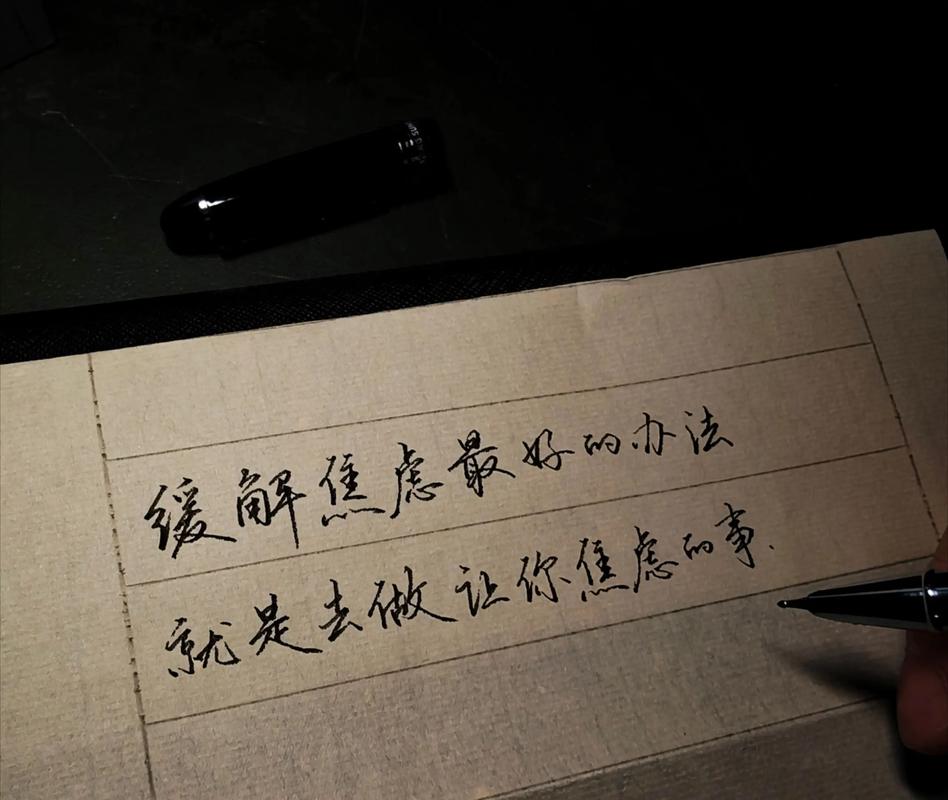 缓解焦虑最好的办法
就是去做让你焦虑的事.